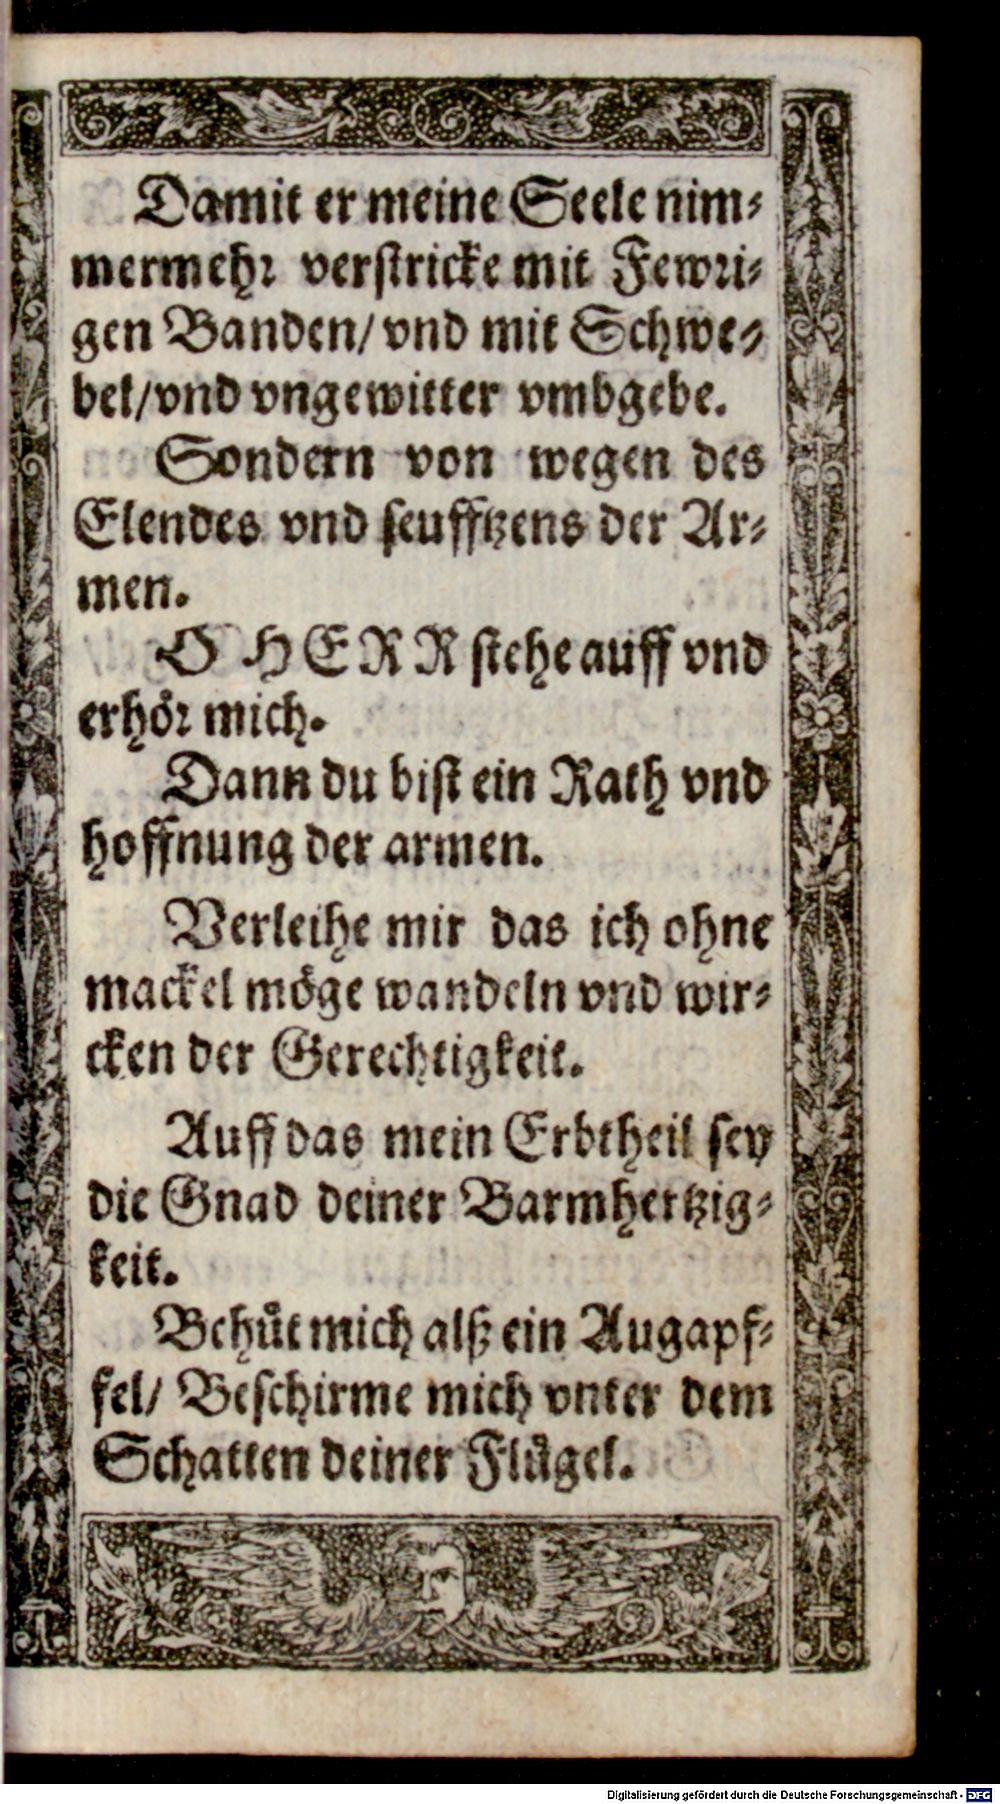 Damit er meine Seele nim⸗
mermehr verstricke mit Fewri⸗
gen Banden/ vnd mit Schwe⸗
bel/vnd vngewitter vmbgebe.
Sondern von wegen des
Elendes vnd seufftzens der Ar⸗
men.
O HERR stehe auff vnd
erhör mich.
Dann du bist ein Rath vnd
hoffnung der armen.
Verleihe mir das ich ohne
mackel möge wandeln vnd wir⸗
cken der Gerechtigkeit.
Auff das mein Erbtheil sey
die Gnad deiner Barmhertzig⸗
keit.
Behüt mich alß ein Augapf⸗
fel/ Beschirme mich vnter dem
Schatten deiner Flügel.
Digitalisierung gefördert durch die Deutsche Forschungsgemeinschaft - DFG